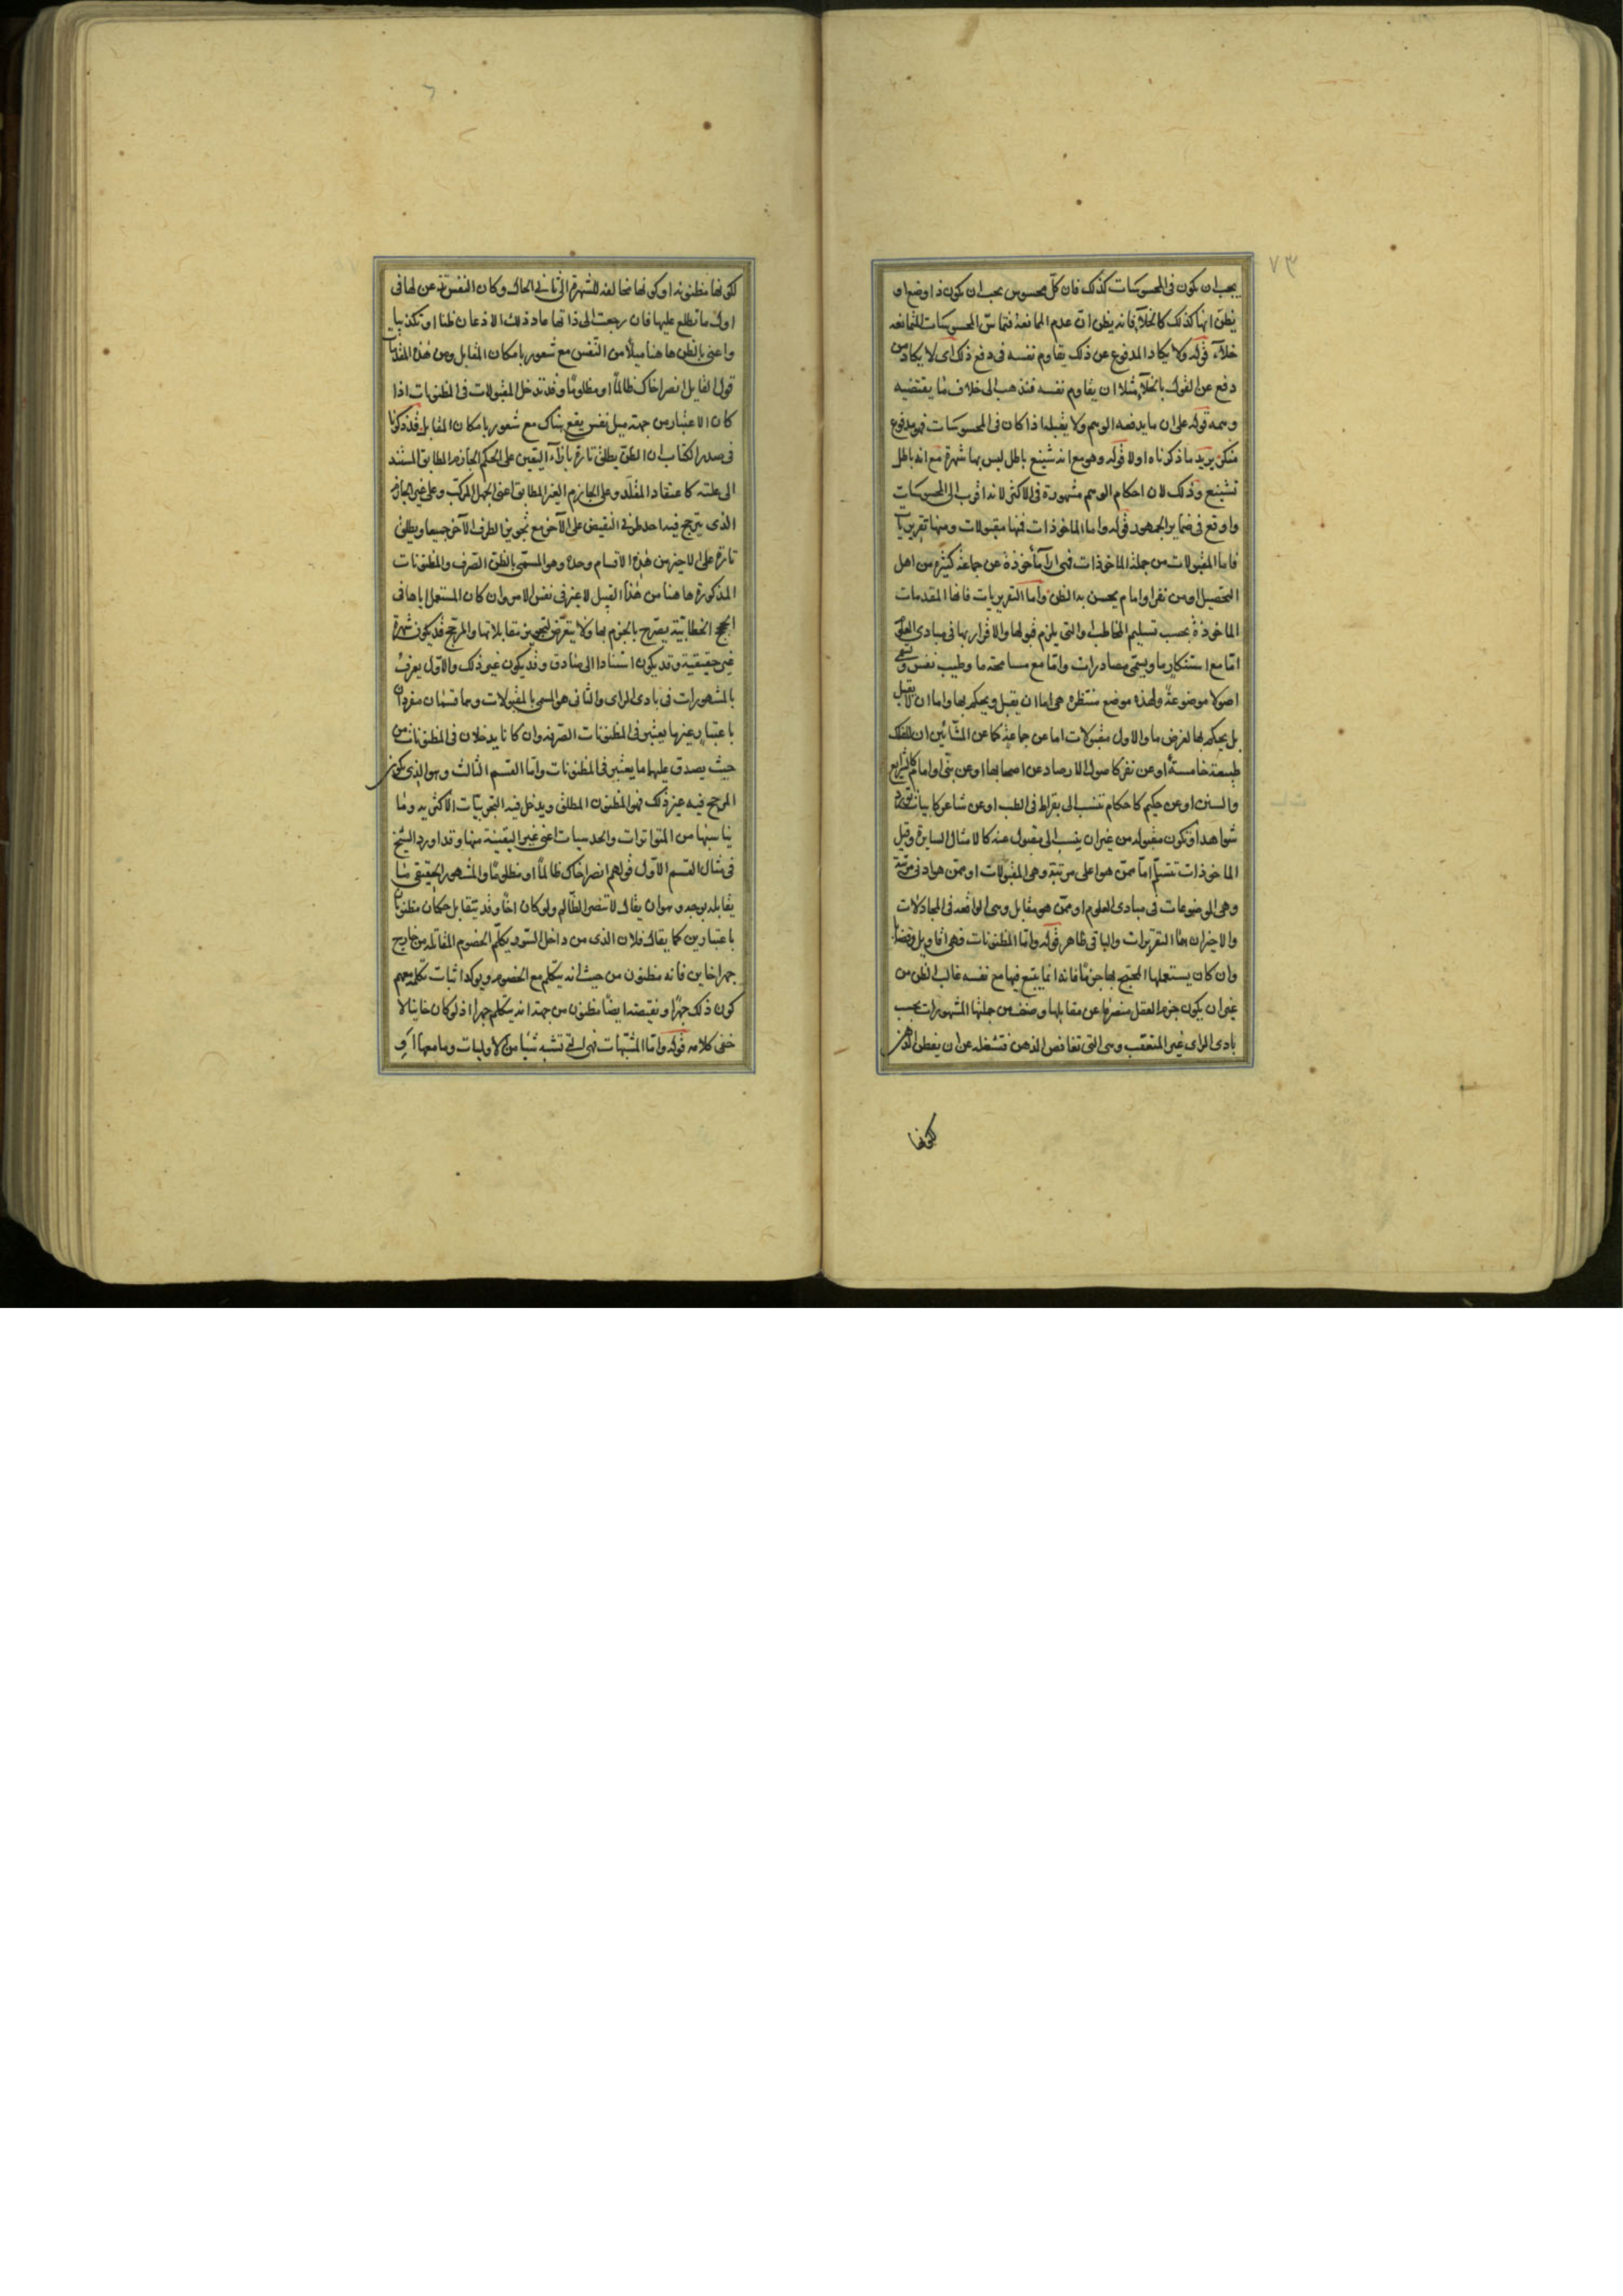 ٧٣
يجب ان يكون فى المحسوسات كذلك فان كل محسوس يجب ان يكون ذا وضع او
يظن انها كذلك كالخلآء فانه يظن ان عدم الممانعة فتماس المحسوسات الممانعه
خلآء قوله ولا يكاد المدفوع عن ذلك يقاوم نفسه فى دفع ذلك اى لا يكاد من
دفع عن القول بالخلآء مثلا ان يقاوم نفسه فتذهب الى خلاف ما يقتضيه
وهمه قوله على ان ما يدفعه الوهم ولا يقبله اذا كان فى المحسوسات فهو مدفوع
منكر يريد ما ذكرناه اولا قوله وهو مع انه شنيع باطل ليس بها شهرة مع انه باطل
تشنيع وذلك لان احكام الوهم مشهورة فى الاكثر لانه اقرب الى المحسوسات
واوقع فى ضماير الجمهور قوله واما الماخوذات فمنها مقبولات ومنها تقريريات
فاما المقبولات من جملة الماخوذات فهى ارآء مأخوذة عن جماعة كثيرة من اهل
التحصيل او من نفر او امام يحسن به الظن واما التقريريات فانها المقدمات
الماخوذة بحسب تسليم المخاطب او التى يلزم قبولها والاقرار بها فى مبادى العلوم
اما مع استنكار ما ويسمى مصادرات واما مع مسامحة ما وطيب نفس ويسمى
اصولا موضوعة ولهذه موضع منتظر هى اما ان يقبل ويحكم بها واما ان لا يقبل
بل يحكم بها لغرض ما والاول مقبولات اما عن جماعة كما عن المشائين ان للفلك
طبيعة خامسة او عن نفر كاصول الارصاد عن اصحابها او عن نبى او امام كالشرايع
والسنن او عن حكيم كاحكام تنسب الى بقراط فى الطب او عن شاعر كابيات تورد
شواهد او تكون مقبوله من غير ان ينسب الى مقبول عنه كالامثال السايرة وقيل
الماخوذات تتسلم اما ممن هو اعلى مرتبة وهى المقبولات او ممن هو ادنى مرتبة
وهى الموضوعات فى مبادى العلوم او ممن هو مقابل وهى الواقعه فى المجادلات
والاخيران هما التقريرات والباقى ظاهر قوله واما المظنونات فهى اقاويل وقضايا
وان كان يستعملها المحتج بها جزمًا فانه انما يتبع فيها مع نفسه غالب الظن من
غير ان يكون جزم العقل منصرفا عن مقابلها وصنف من جملتها المشهورات بحسب
بادى الراى غير المتعقب وهى التى تغافص الذهن فتشغله عن ان يفطن الذهن
لكونها
لكونها مظنونه او كونها مخالفه للشهرة الى ثانى الحال وكان النفس تذعن لها فى
اول ما تطلع عليها فان رجعت الى ذاتها عاد ذلك الاذعان ظنا او تكذيبا
واعنى بالظن هاهنا ميلًا من النفس مع شعور بامكان المقابل ومن هذه المقدمات
قول القايل انصر اخاك ظالمًا او مظلومًا وقد تدخل المقبولات فى المظنونات اذا
كان الاعتبار من جهة ميل نفس يقع هناك مع شعور بامكان المقابل قد ذكرنا
فى صدر الكتاب ان الظن يطلق تارة بازآء اليقين على الحكم الجازم المطابق المستند
الى علته كاعتقاد المقلد وعلى الجازم الغير المطابق اعنى الجهل المركب وعلى غير الجازم
الذى يترجح فيه احد طرفى النقيض على الآخر مع تجويز الطرف الآخر جميعا ويطلق
تارة على الاخير من هذه الاقسام وحده وهو المسمى بالظن الصرف والمظنونات
المذكورة هاهنا من هذا القبيل لا غير فى نفس الامر وان كان المستعمل اياها فى
الحجج الخطابية يصرح بالجزم بها ولا يتعرض لتجويز مقابلاتها والمرجح قد يكون شهرة
غير حقيقية وقد يكون استنادا الى صادق وقد يكون غير ذلك والاول يعرف
بالمشهورات فى بادى الراى والثانى هو المسمى بالمقبولات وهما قسمان مفردان
باعتبار غيرها يعتبر فى المظنونات الصرفه وان كانا يدخلان فى المظنونات من
حيث يصدق عليهما ما يعتبر فى المظنونات واما القسم الثالث وهو الذى يكون
المرجح فيه غير ذلك فهو المظنون المطلق ويدخل فيه التجربيات الاكثريه وما
يناسبها من المتواترات والحدسيات اعنى غير اليقينية منها وقد اورد الشيخ
فى مثال القسم الاول قولهم انصر اخاك ظالمًا او مظلومًا والمشهور الحقيقى ما
يقابله بوجه وهو ان يقال لا تنصر الظالم ولو كان اخًا وقد يتقابل حكمان مظنونان
باعتبارين كما يقال فلان الذى من داخل السور يكلم الخصوم المقاتله من خارج
جهرا خاين فانه مظنون من حيث انه يتكلم مع الخصوم ويوكد اثبات تكلمه معهم
كون ذلك جهرًا ونقيضه ايضًا مظنون من جهة انه يتكلم جهرا اذ لو كان خاينا لا
خفى كلامه قوله واما المشبهات فهى التى تشبه شيئا من الاوليات وما معها او